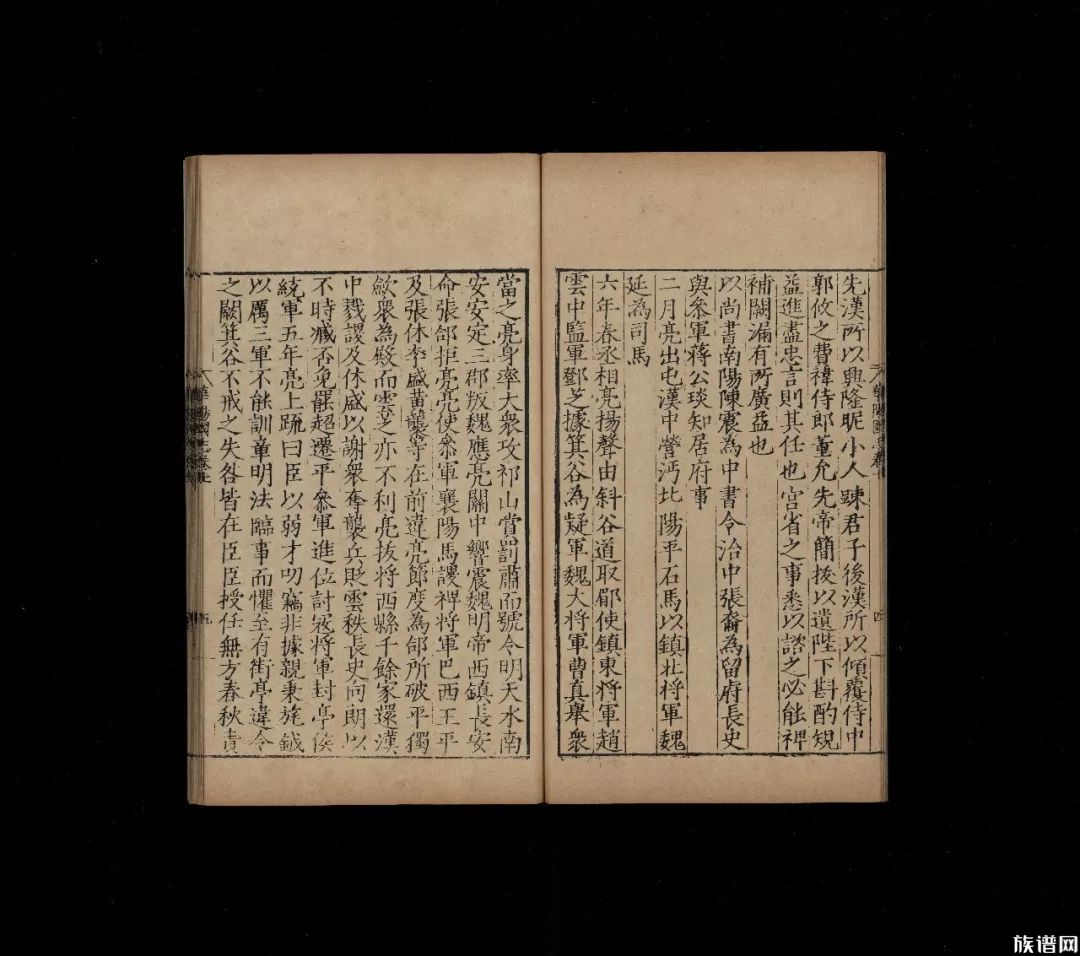 先漢所以興隆昵小人踈君子後漢所以傾覆侍中
郭攸之費禕侍郎董允先帝簡拔以遺陛下斟酌規
益進盡忠言則其任也宮省之事悉以諮之必能裨
補闕漏有所廣益也
以尚書南陽陳震為中書令治中張裔為留府長史
與叅軍蔣公琰知居府事
二月亮出屯漢中營沔北陽平石馬以鎮北將軍魏
延為司馬
六年春丞相亮揚聲由斜谷道取郿使鎮東將軍趙
雲中監軍鄧芝據箕谷為疑軍魏大將軍曹真舉衆
當之亮身率大衆攻祁山賞罰肅而號令明天水南
安安定三郡叛魏應亮關中響震魏明帝西鎮長安
命張郃拒亮亮使叅軍襄陽馬謖裨將軍巴西王平
及張休李盛黄襲等在前違亮節度為郃所破平獨
歛衆為殿而雲芝亦不利亮拔將西縣千餘家還漢
中戮謖及休盛以謝衆奪襲兵貶雲秩長史向朗以
不時臧否免罷超遷平叅軍進位討冦將軍封亭侯
統軍五年亮上疏曰臣以弱才叨竊非據親秉旄鉞
以厲三軍不能訓章明法臨事而懼至有街亭違令
之闕箕谷不戒之失咎皆在臣臣授任無方春秋責
華陽國志卷七
五
族谱网